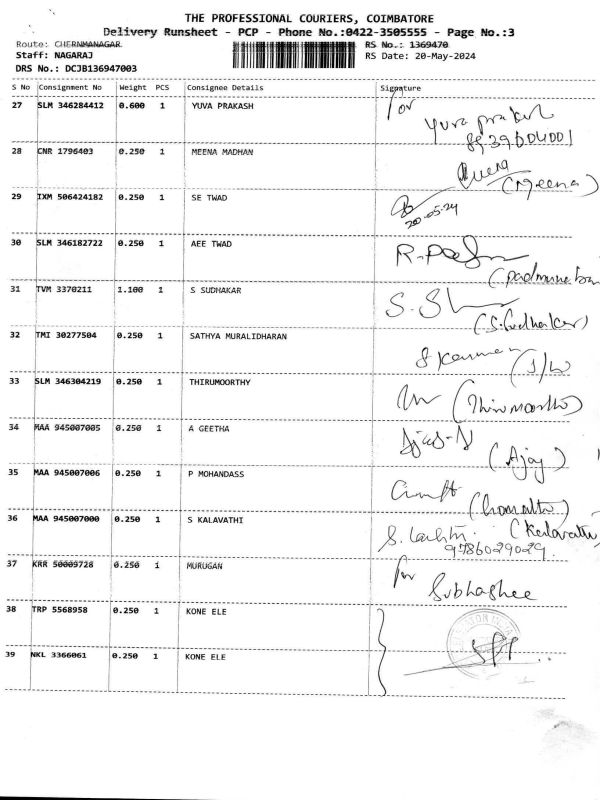 THE PROFESSIONAL COURIERS, COIMBATORE
Delivery Runsheet - PCP - Phone No.:0422-3505555 - Page No.:3
Route: CHERNMANAGAR RS No.: 1369470
Staff: NAGARAJ RS Date: 20-May-2024
DRS No.: DCJB136947003
S No Consignment No Weight PCS Consignee Details Signature
27 SLM 346284412 0.600 1 YUVA PRAKASH For
Yuva prakash
28 CNR 1796403 0.250 1 MEENA MADHAN
(Meena)
29 IXM 506424182 0.250 1 SE TWAD
20-05-24
30 SLM 346182722 0.250 1 AEE TWAD
31 TVM 3370211 1.100 1 S SUDHAKAR
(S.Sudhakar)
32 TMI 30277504 0.250 1 SATHYA MURALIDHARAN
33 SLM 346304219 0.250 1 THIRUMOORTHY
34 MAA 945007005 0.250 1 A GEETHA
(Ajay)
35 MAA 945007006 0.250 1 P MOHANDASS
36 MAA 945007000 0.250 1 S KALAVATHI (Kalavathi)
9786029029
37 KRR 50009728 0.250 1 MURUGAN For
Subhashee
38 TRP 5568958 0.250 1 KONE ELE
39 NKL 3366061 0.250 1 KONE ELE